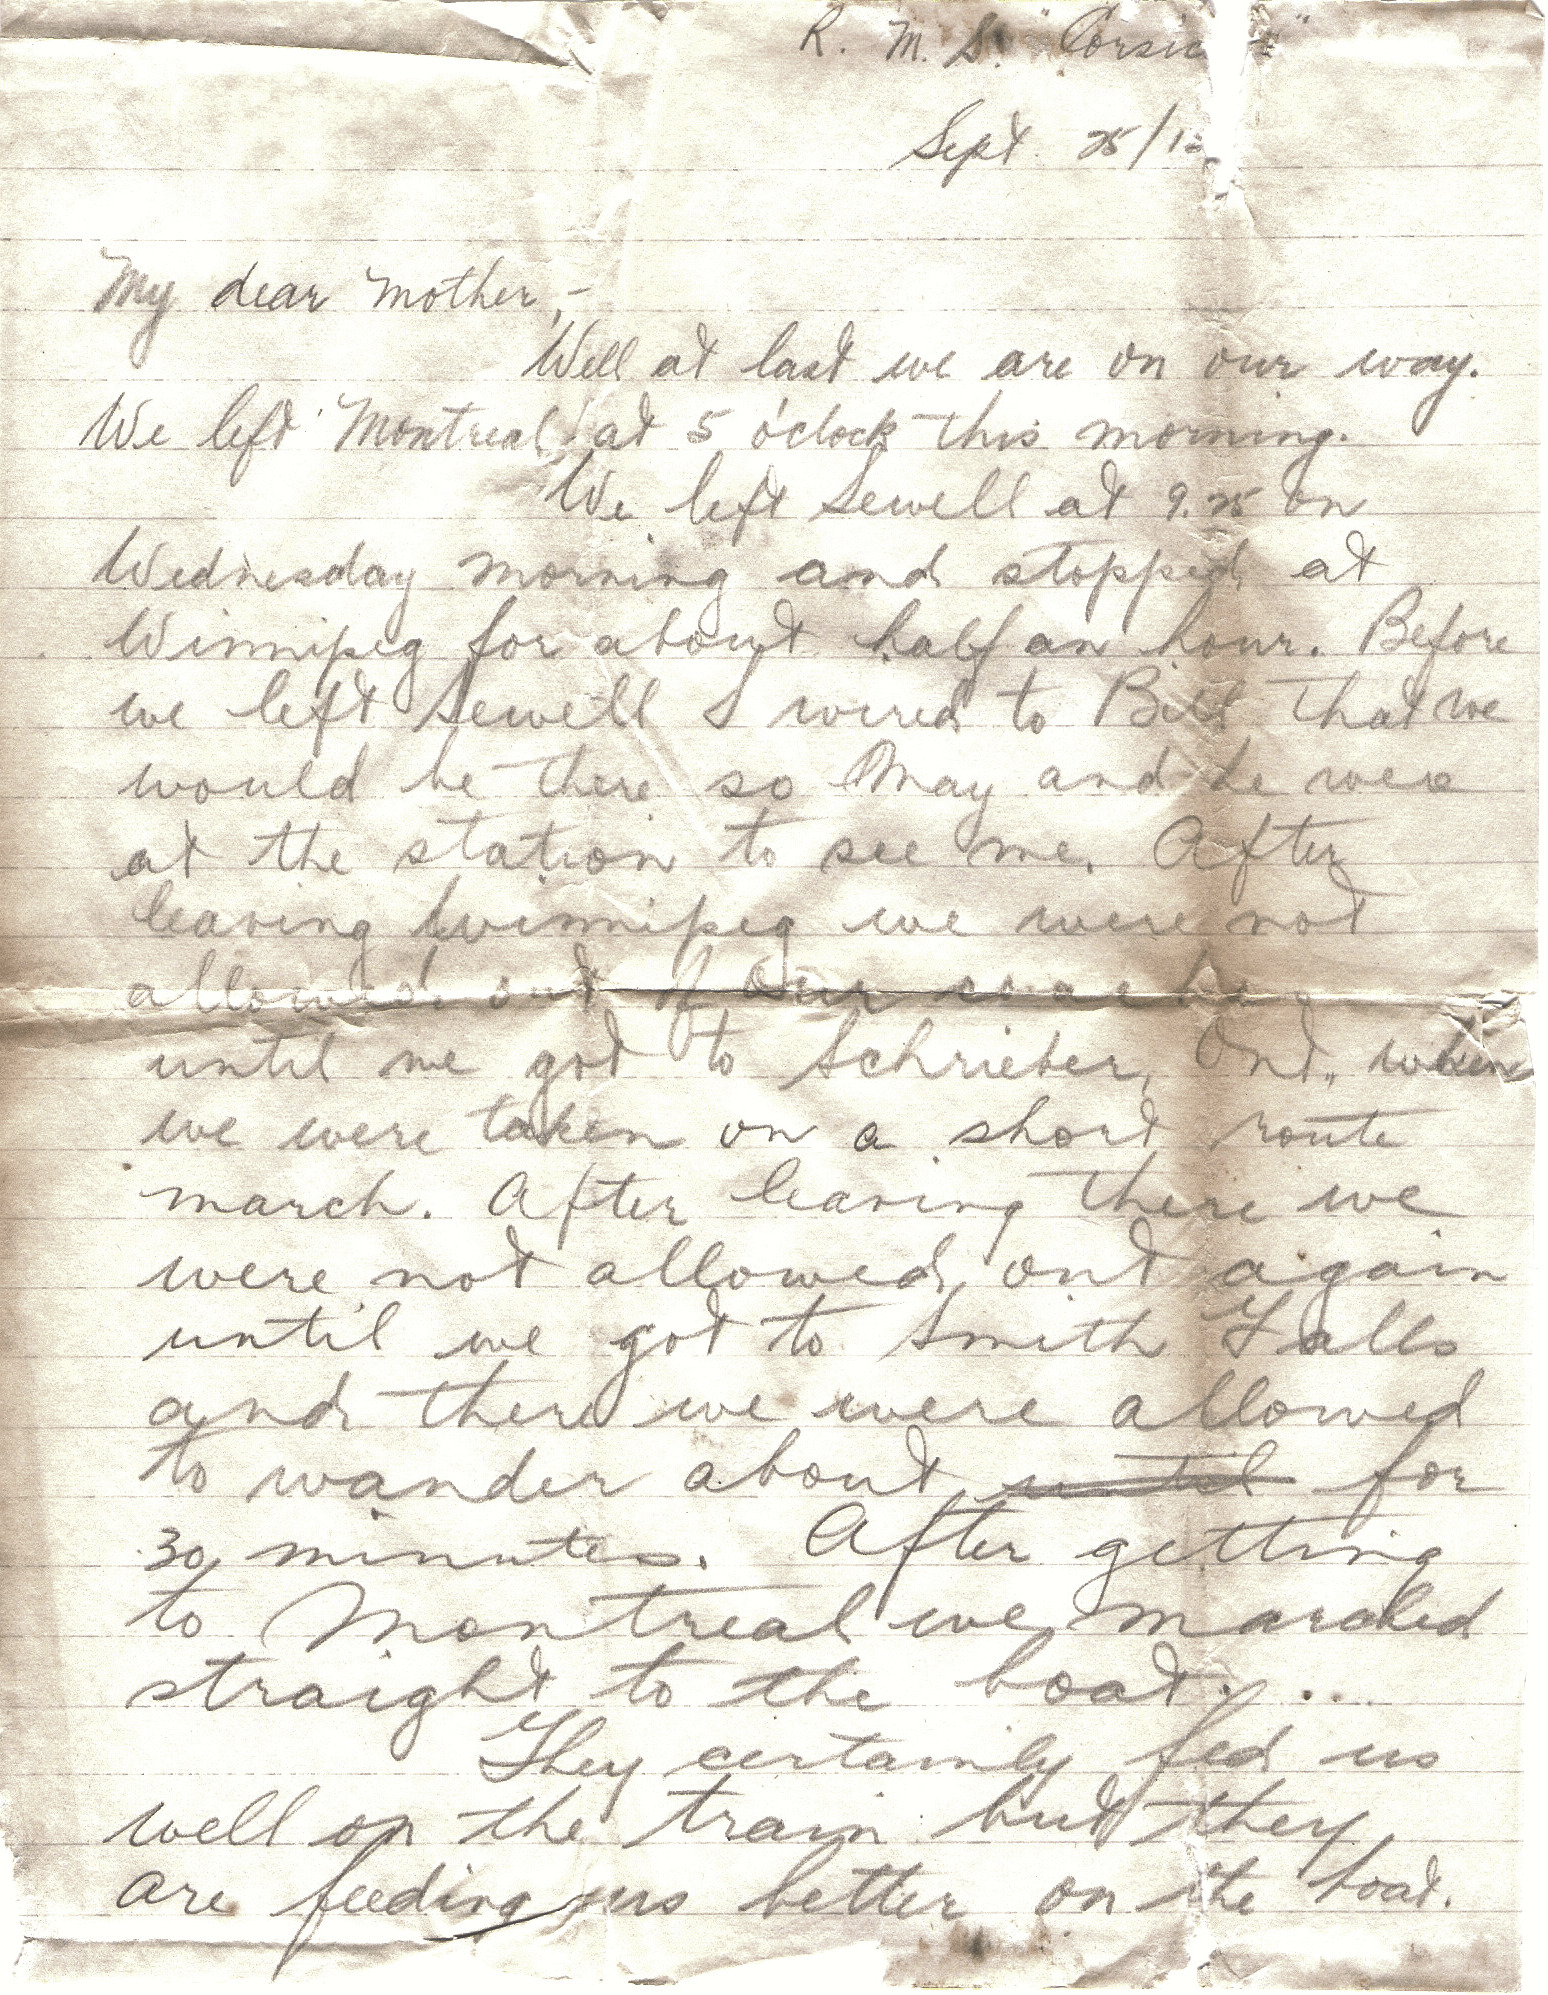 R. M. S. "Corsic
Sept. 25/1
My dear Mother,-
Well at last we are on our way.
We left Montreal at 5 o'clock this morning.
We left Sewell at 9.25 on
Wednesday morning and stopped at
Winnipeg for about half an hour. Before
we left Sewell I wired to Bill that we
would be there so May and he were
at the station to see me. After
leaving Winnipeg we were not
allowed out of our coaches
until we got to Schrieber, Ont., when
we were taken on a short route
march. After leaving there we
were not allowed out again
until we got to Smith Falls
and there we were allowed
to wander about until for
30 minutes. After getting
to Montreal we marched
straight to the boat. ...
They certainly fed us
well on the train but they
are feeding us better on the boat.